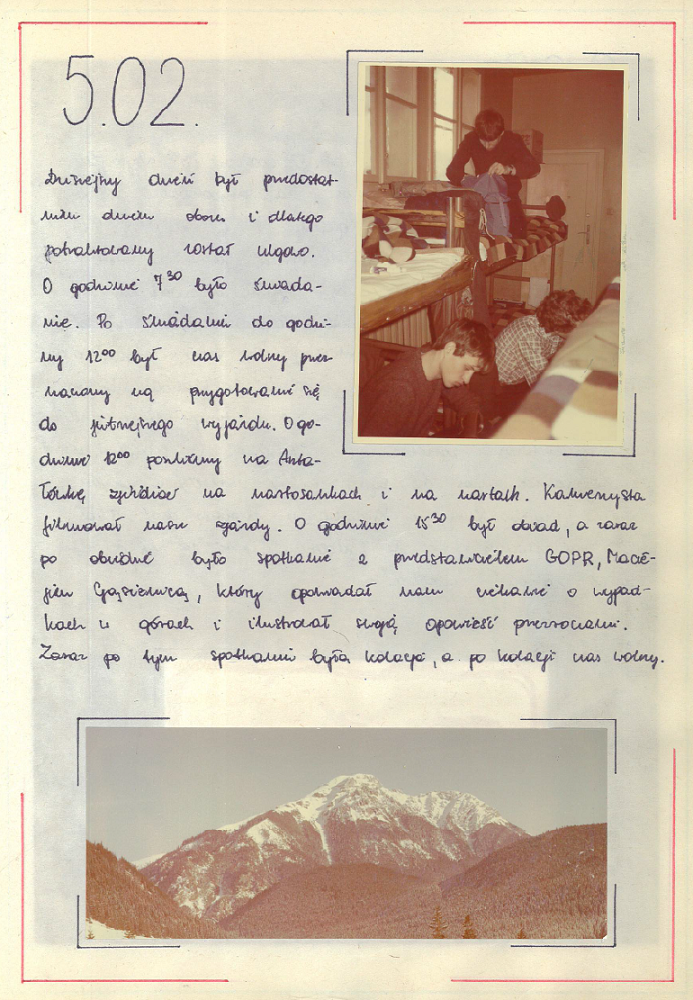 5.02.
Dzisiejszy dzień był przedostat-
nim dniem obozu i dlatego
potraktowany został ulgowo.
O godzinie 7³⁰ było śniada-
nie. Po śniadaniu do godzi-
ny 12⁰⁰ był czas wolny prze-
znaczony na przygotowanie się
do jutrzejszego wyjazdu. O go-
dzinie 12⁰⁰ poszliśmy na Anta-
łówkę zjeżdżać na nartosankach i na nartach.
filmował nasze zjazdy. O godzinie 15³⁰ był obiad, a zaraz
po obiedzie było spotkanie z przedstawicielem GOPR, Macie-
jem Gąsienicą, który opowiadał nam ciekawie o wypad-
kach w górach i ilustrował swoją opowieść przezroczami.
Zaraz po tym spotkaniu była kolacja, a po kolacji czas wolny.